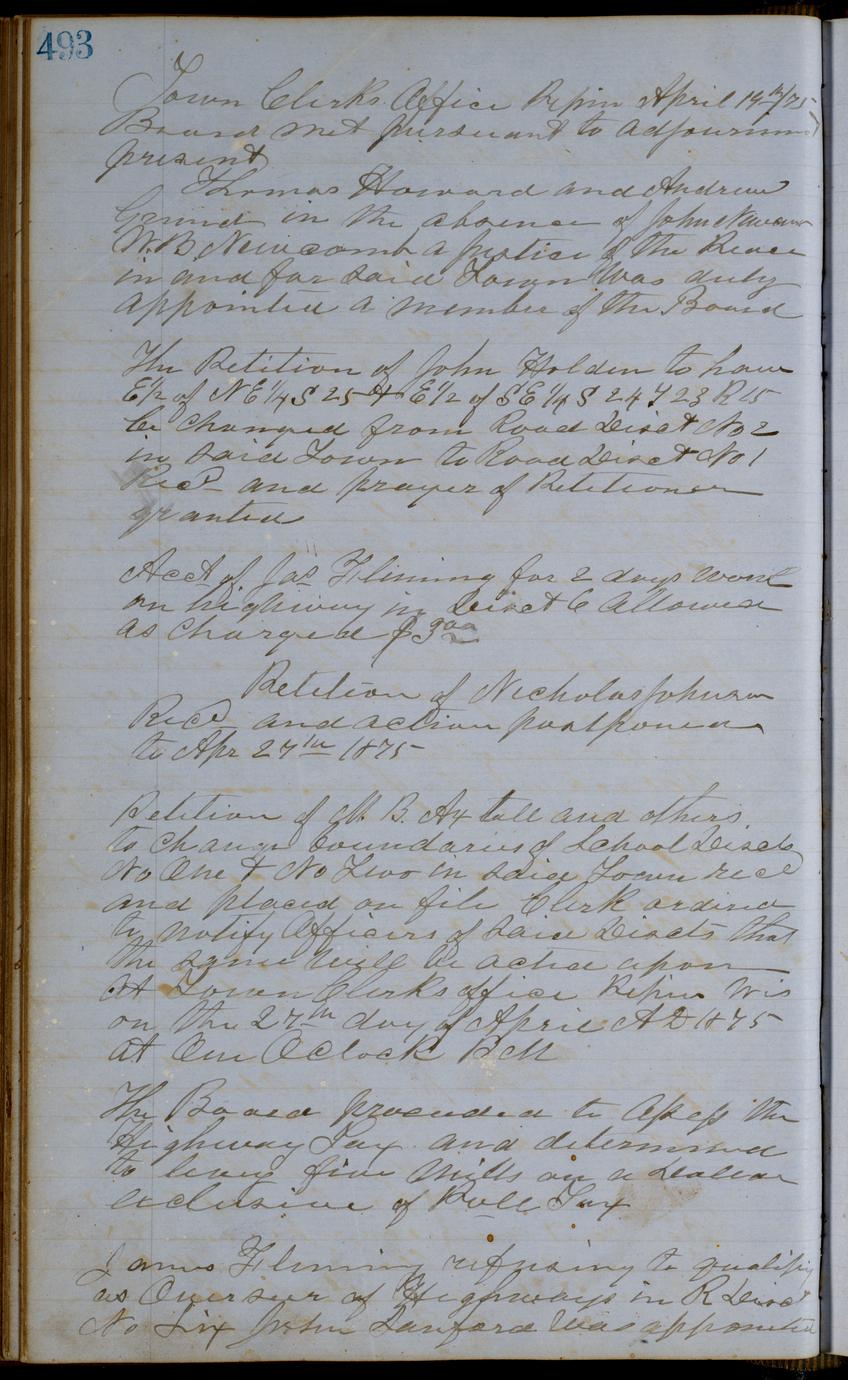 493
Town Clerks Office Pepin April 19th/75
Board met pursuant to adjournment
present
Thomas Howard and Andrew
in the absence of John
W.B. Newcomb a Justice of the Peace
in and for said Town was duly
appointed a member of the Board
The Petition of John Holden to have
E 1/2 of N E 1/4 S 25 & E 1/2 of S E 1/4 S 24 T 23 R 15
be changed from Road Disct No 2
in said Town to Road Disct No 1
Recd and prayer of Petitioner
granted
Acct of Jas Fliming for 2 days work
on highway in Disct 6 allowed
as charged $3.00
Petition of Nicholas Johnson
Recd and action postponed
to Apr 27th 1875
Petition of M. B. Axtell and others
to change boundaries of School Discts
No One & No Two in said Town recd
and placed on file Clerk ordired
to notify Officers of said Discts that
the same will be acted upon
at Town Clerks office Pepin Wis
on the 27th day of April A D 1875
at One OClock P M
The Board proceeded to assess the
Highway Tax and determined
to levy five mills on a Dollar
exclusive of Poll Tax
James Fliming refusing to qualify
as Overseer of Highways in R Disct
No Six John Sanford was appointed